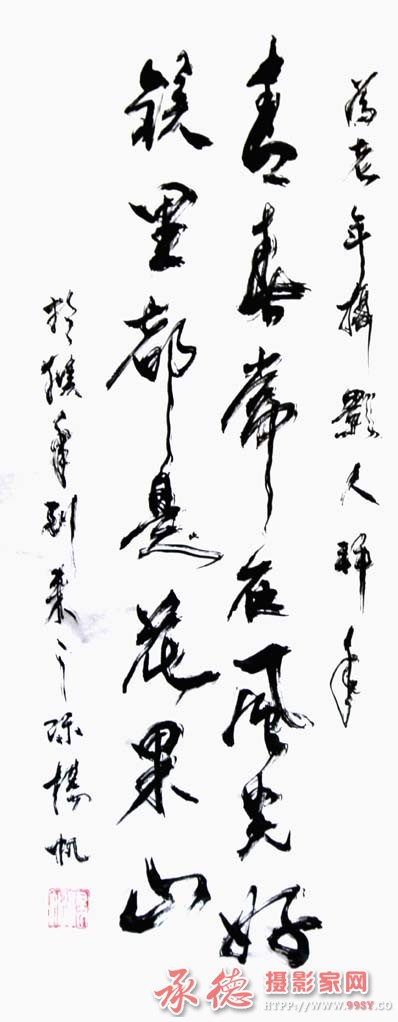 为老年摄影人拜年
青春常在风光好
镜里都是花果山
于猴年到来之际 杨帆
承德摄影家网
HTPP://WWW.99SY.CO